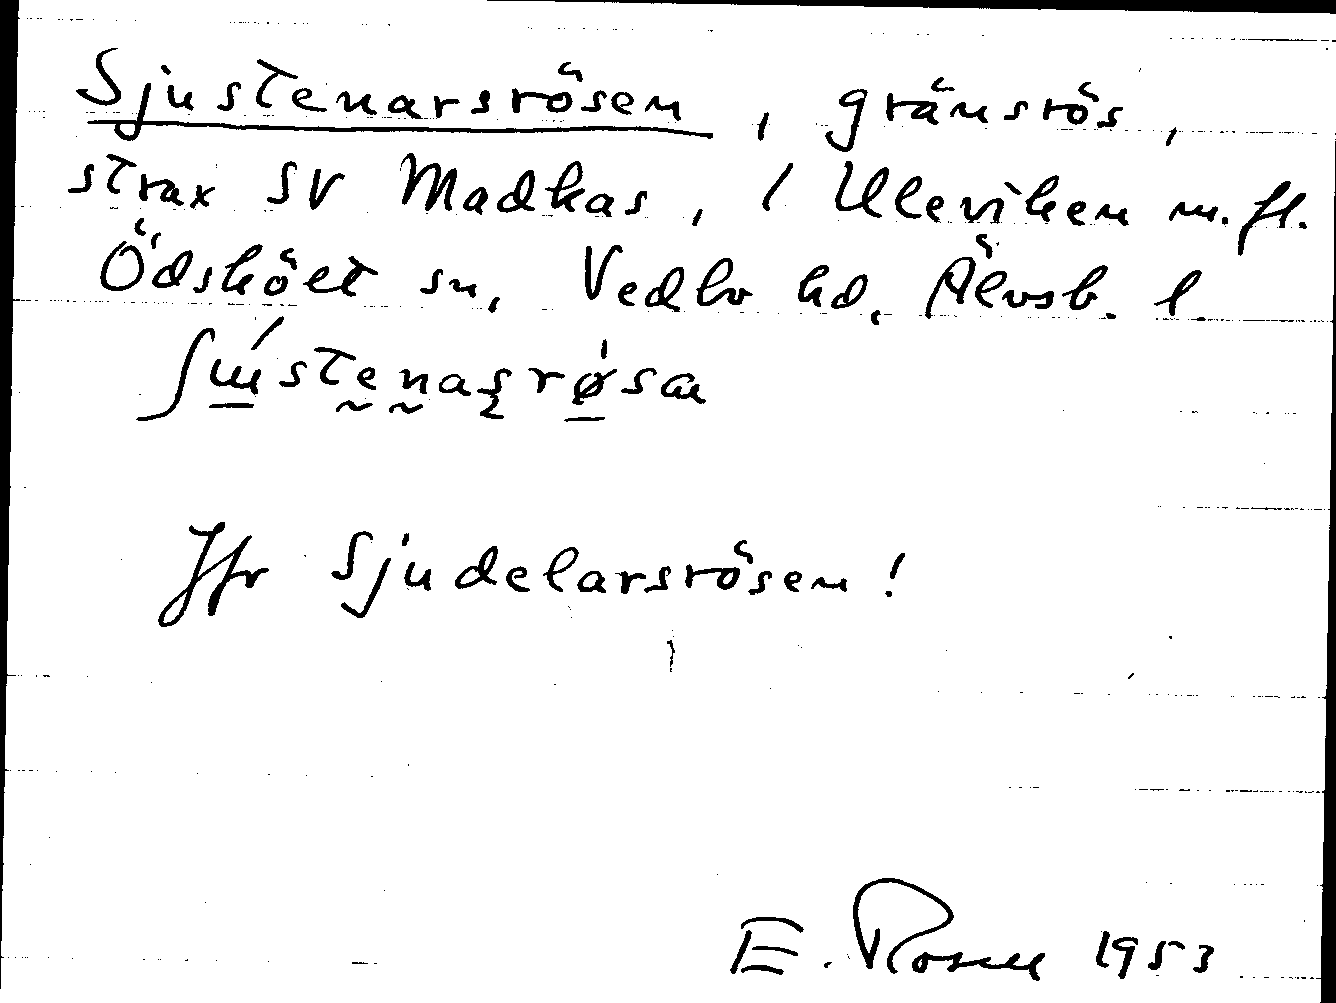 Sjustenarsrösen, gränsrös,
strax SV Madkas, / Uleviken m. fl.
Ödsköлt sn, Vedbo hd, Älvsb. l.
Jfr Sjudelarsrösen!
E. Rosell 1953